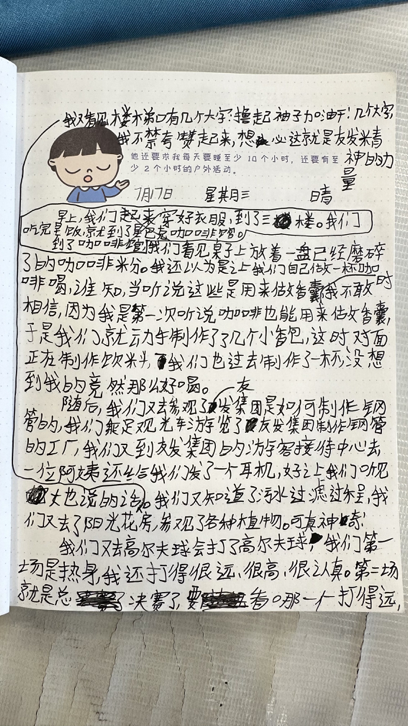 我又看见楼梯前口有几个大字:撸起袖子加油干!几个大字
我不禁夸赞起来,想必这就是友发米青
神的力
量
他还要求我每天要睡至少10个小时,还要有至
少2个小时的户外活动。
7月17日 星其月三 晴
早上,我们起来穿好衣服,到了三楼。我们
吃完早饭,就到了星巴克咖啡馆。
到了咖啡馆我们看见桌子上放着一盘已经磨碎
了的咖啡米分。我还以为是让我们自己做一杯咖
啡喝,谁知,当听说这些是用来做香囊我不敢
相信,因为我是第一次听说咖啡也能用来做香囊,
于是我们就动手制作了几个小香包,这时对面
正在制作饮料,我们也过去制作了一杯没想
到我的竟然那么好喝。
随后,我们又去参观了友发集团是如何制作钢
管的,我们能走观光车游览了友发集团制作钢管
的工厂,我们又到友发集团的游客接待中心去,
一位阿姨还给我们发了一个耳机,好让我们听见
大也说的话。我们又知道了污水过滤过程,我
们又去了阳光花房,参观了各种植物。可真神奇!
我们又去高尔夫球会打了高尔夫球,我们第一
场是热身,我还打得很远,很高,很认真。第二场
就是总决赛了,要看哪一个打得远,